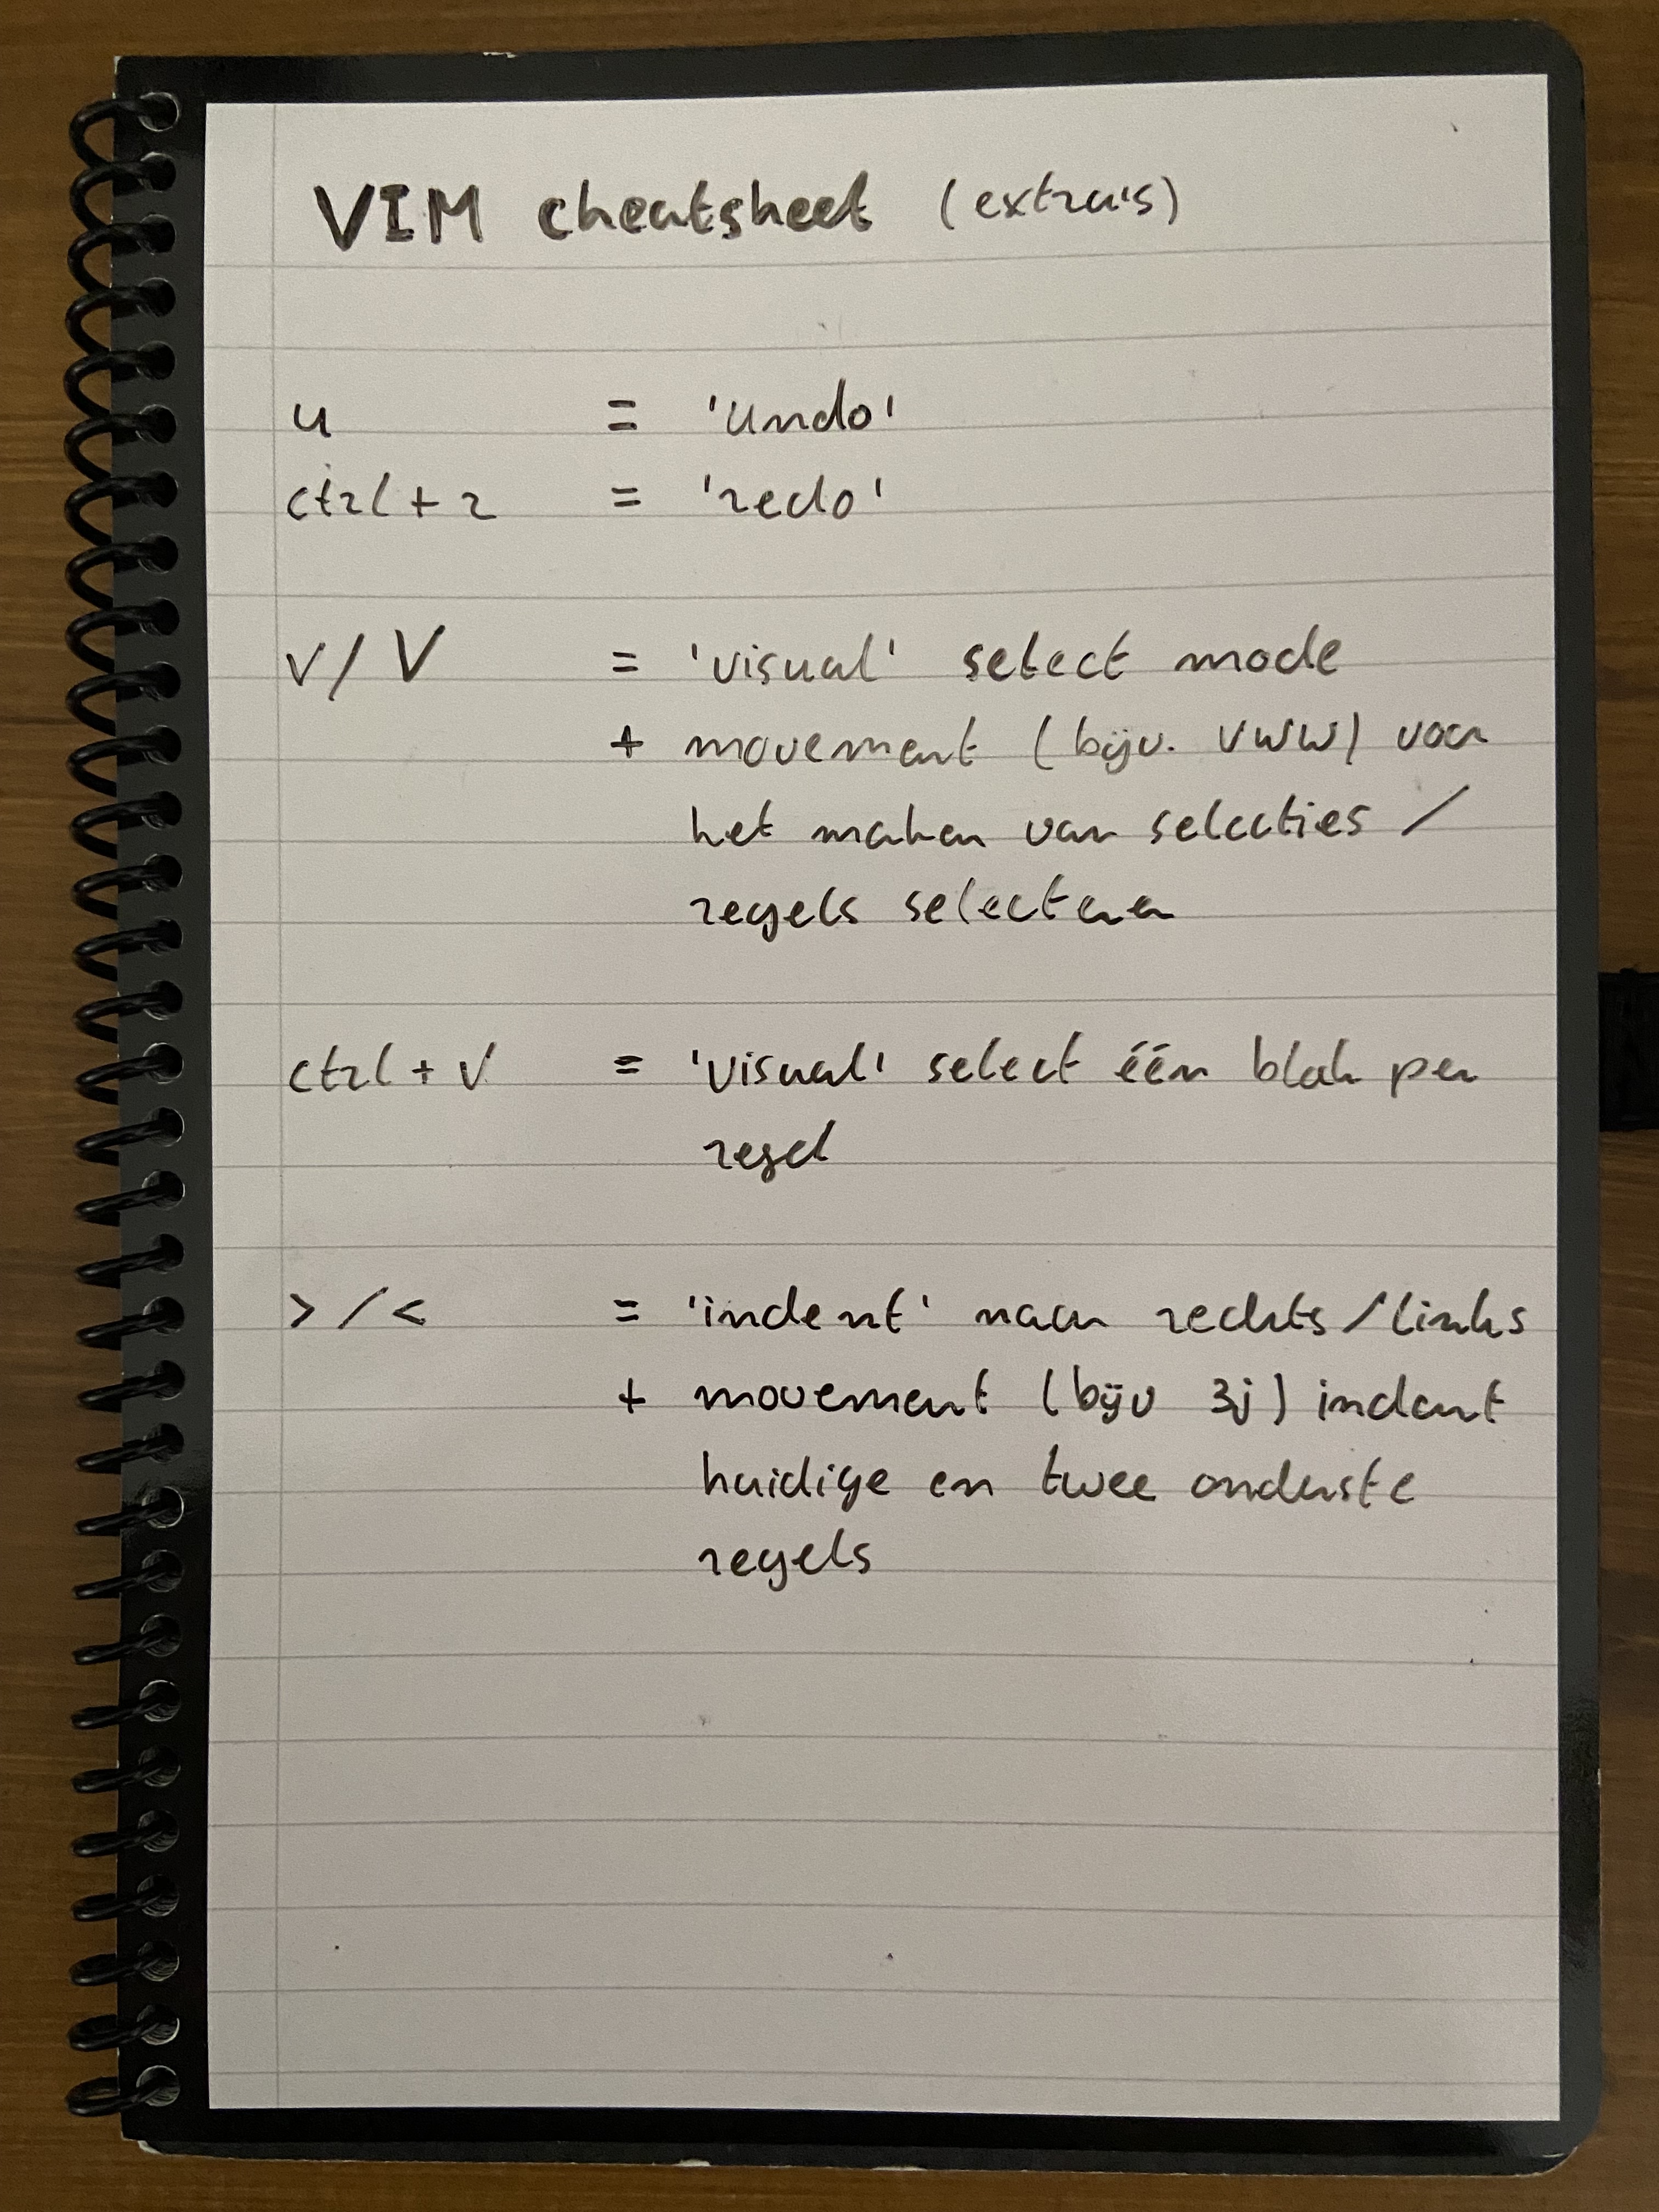 VIM cheatsheet (extra's)
u = 'undo'
ctrl + r = 'redo'
v / V = 'visual' select mode
+ movement (bijv. vww) voor
het maken van selecties /
regels selecteren
ctrl + v = 'visual' select één blok per
regel
> / < = 'indent' naar rechts / links
+ movement (bijv 3j) indent
huidige en twee onderste
regels